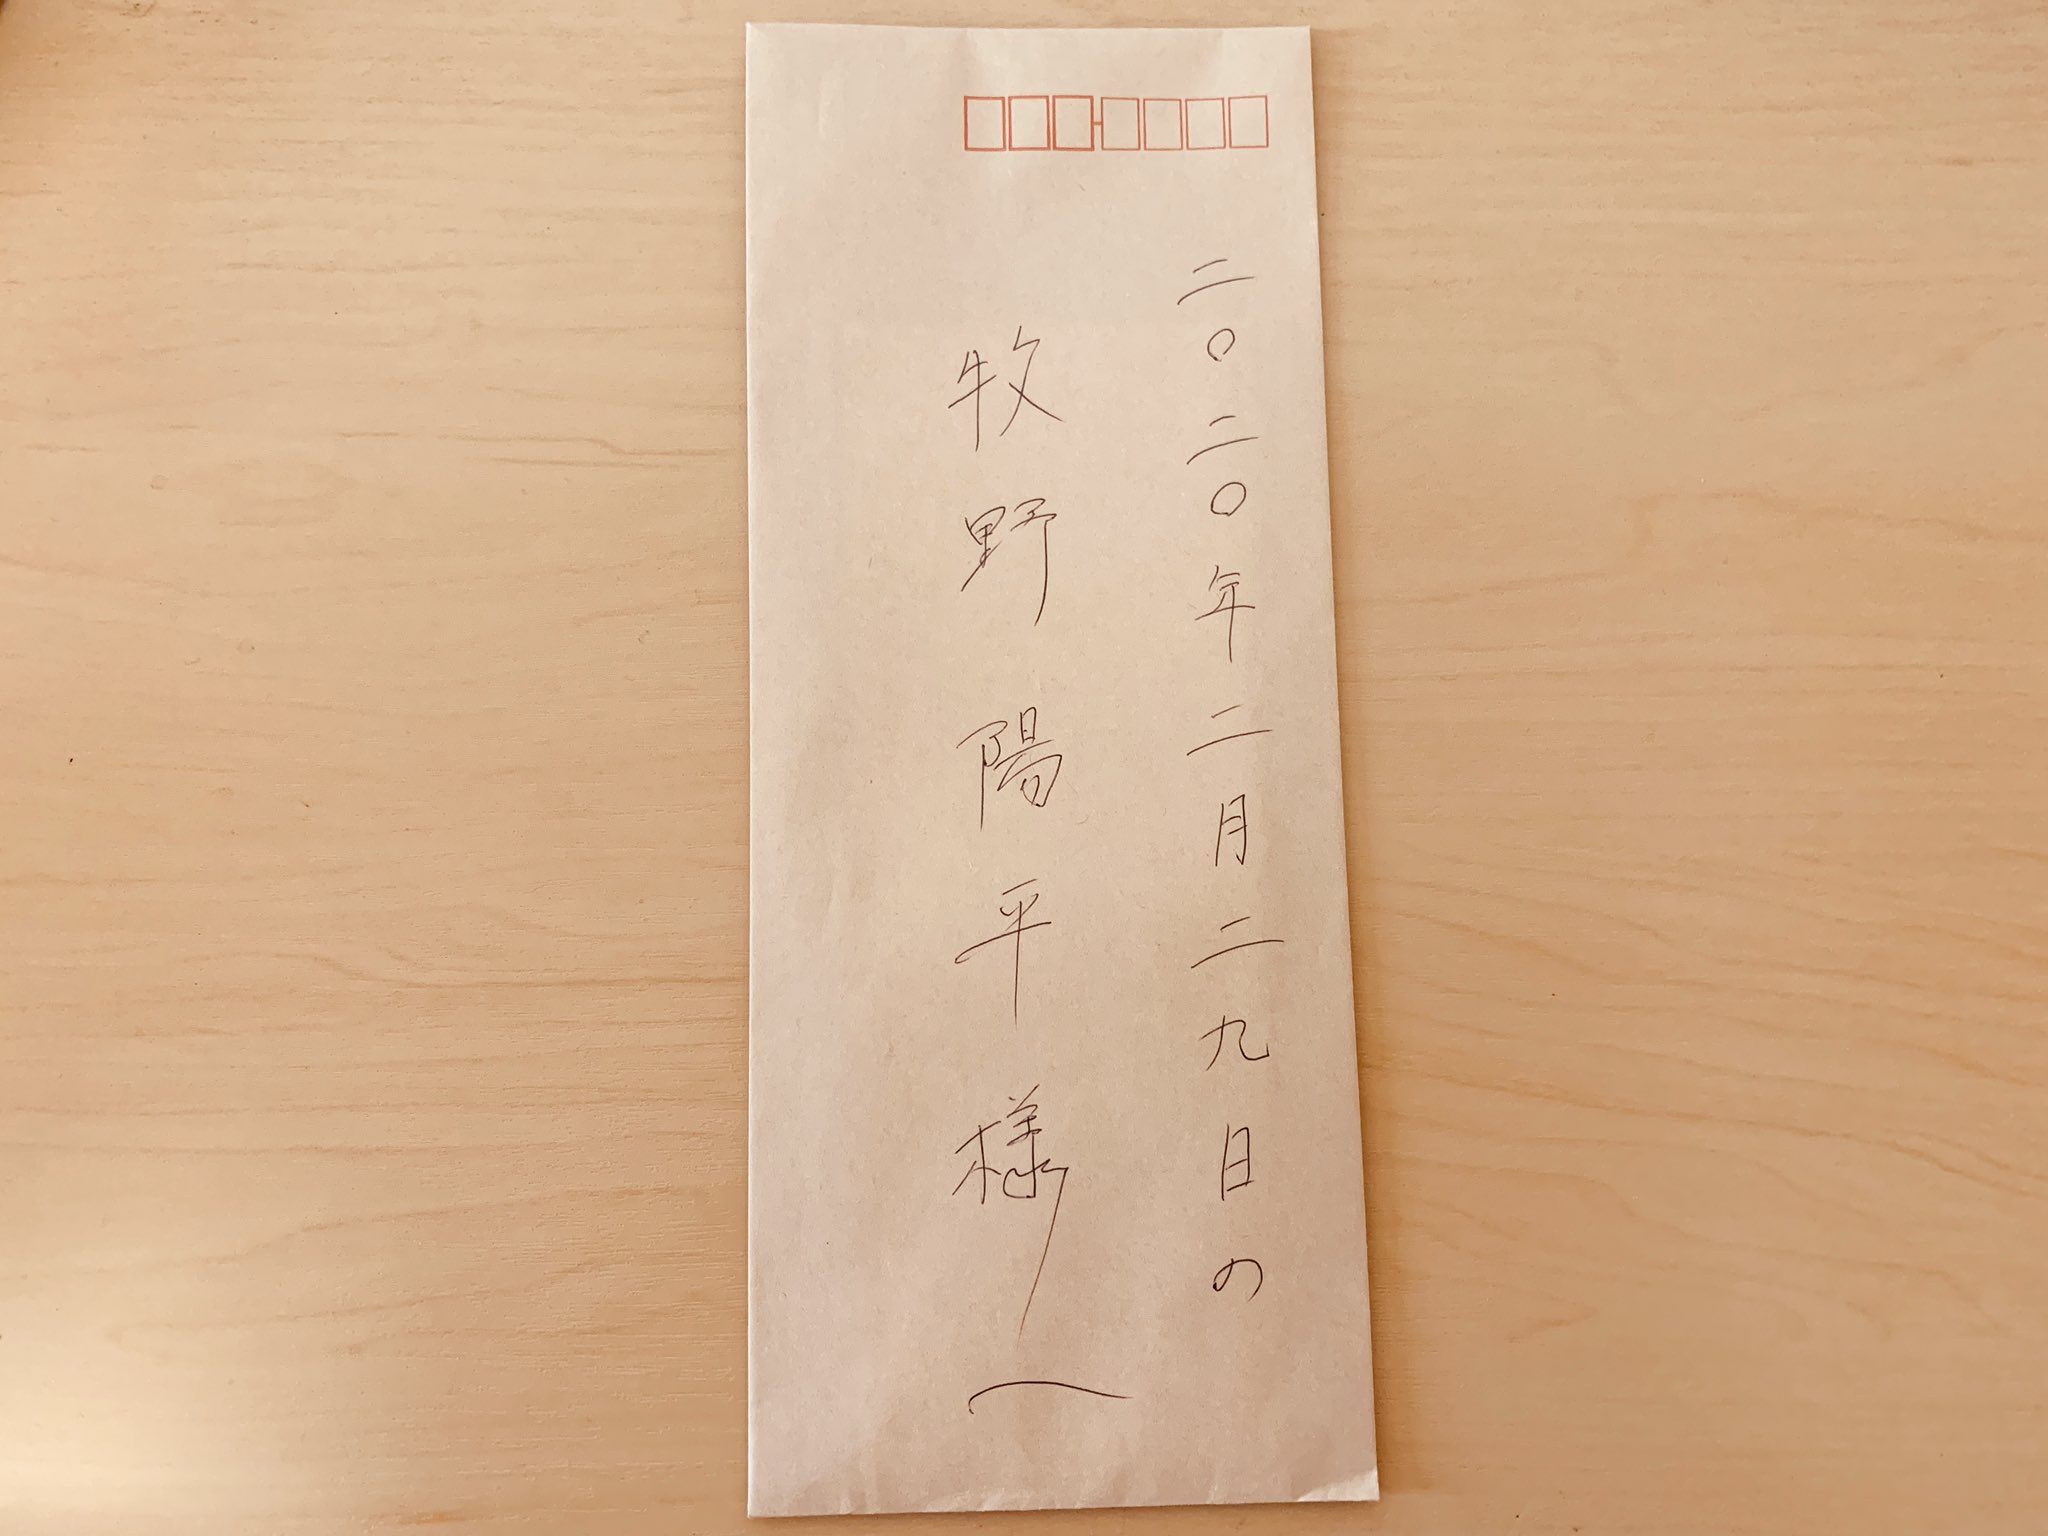 二〇二〇年二月二九日の
牧野陽平様へ